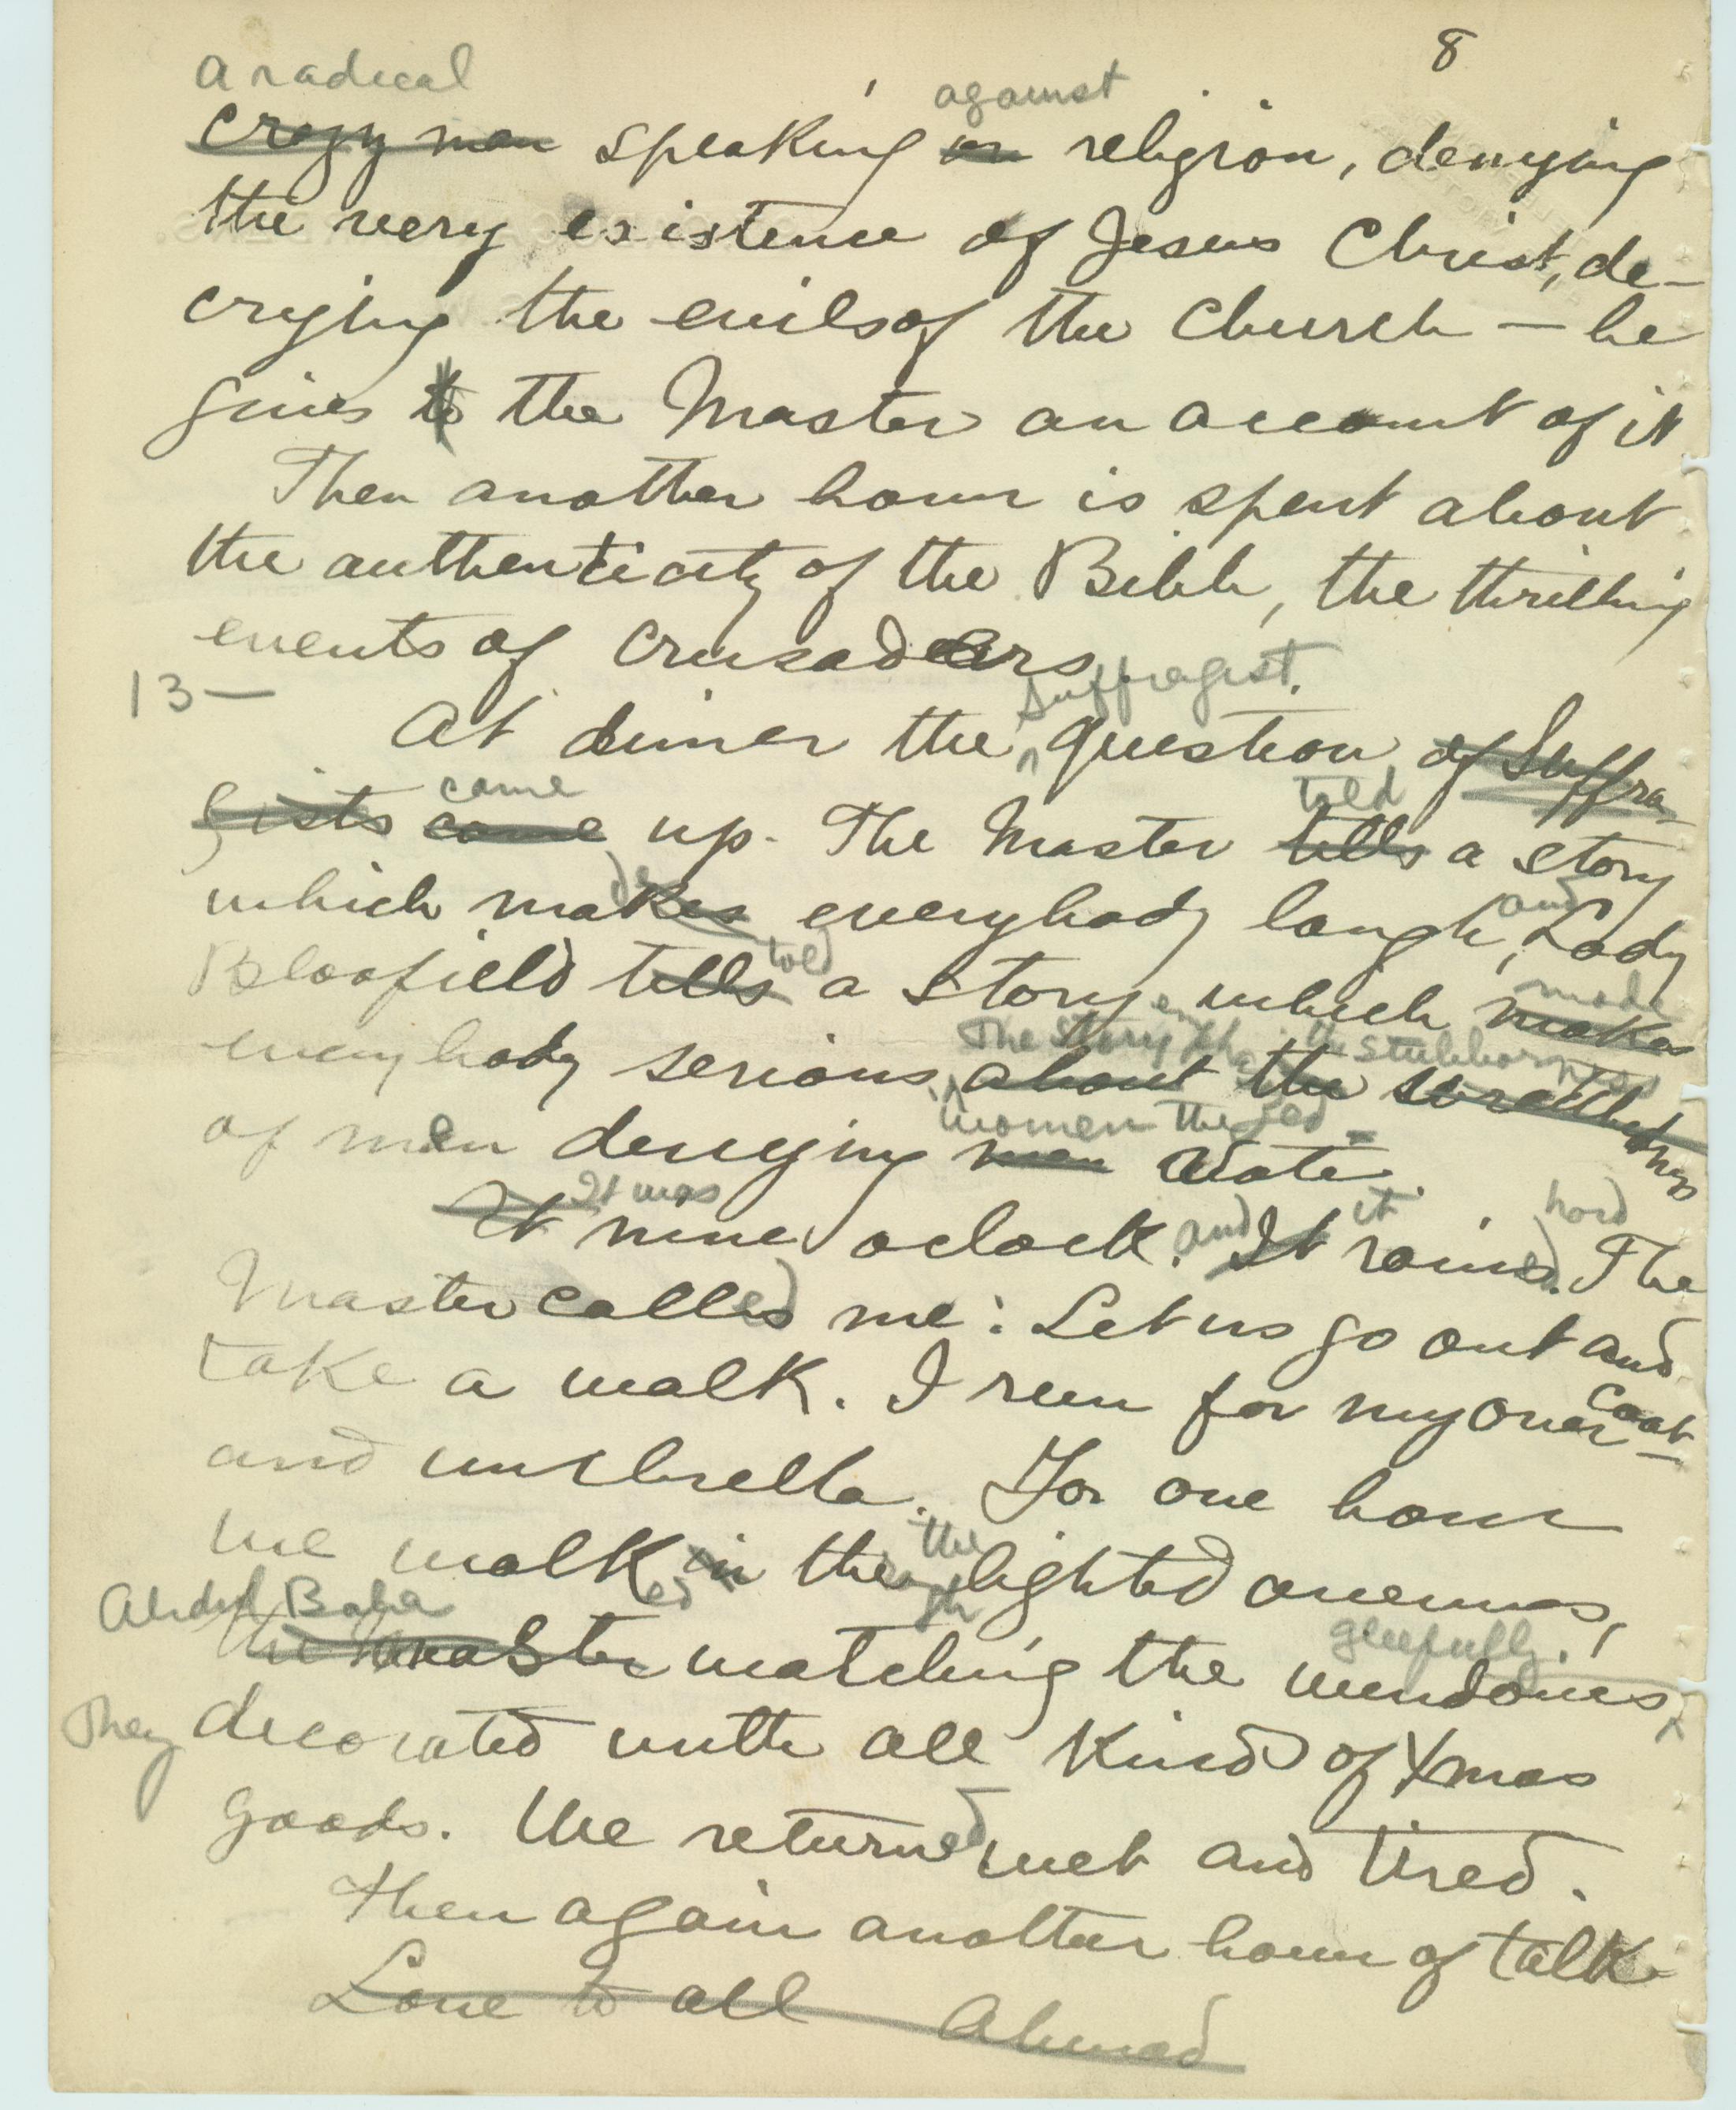 8
a radical against
crazy man speaking on religion, denying
the very existence of Jesus Christ, de-
crying the evils of the Church — he
gives to the Master an account of it
Then another hour is spent about
the authenticity of the Bible, the thrilling
events of Crusaders
13— Suffragist.
At dinner the question of Suffra-
gists came up. The Master tells a story
came told
which makes everybody laugh, Lady
de and
Bloofield tells a story which makes
told made
everybody serious about the wretchedness
The Story the stubborness
of men denying men Vote.
women the
It nine oclock. It rains. The
It was and it hard
Master called me: Let us go out and
take a walk. I run for my over coat
and umbrella. For one hour
we walked in the lighted avenues,
ed the ugh
Abdul Baha gleefully.
the Master watching the windows
They decorated with all kind of Xmas
goods. We returned wet and tired.
Then again another hour of talk
Love to all Ahmad